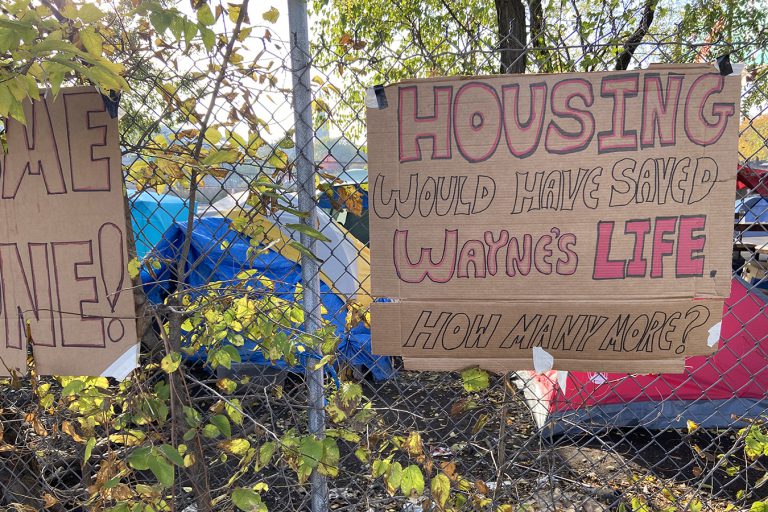 OME
ONE!
HOUSING
WOULD HAVE SAVED
WAYNE'S LIFE.
HOW MANY MORE?